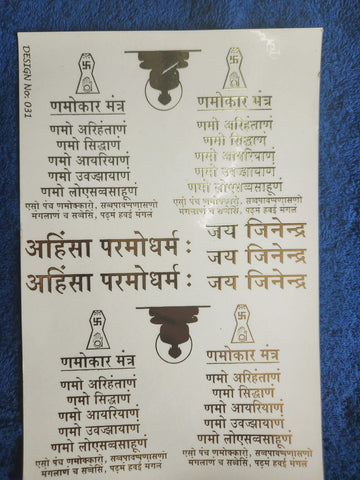 DESIGN No. 031
णमोकार मंत्र
णमो अरिहंताणं
णमो सिद्धाणं
णमो आयरियाणं
णमो उवज्झायाणं
णमो लोएसव्वसाहूणं
एसो पंच णमोक्कारो, सव्वपावप्पणासणो
मंगलाणं च सव्वेसिं, पढ़मं हवई मंगलं
णमोकार मंत्र
णमो अरिहंताणं
णमो सिद्धाणं
णमो आयरियाणं
णमो उवज्झायाणं
णमो लोएसव्वसाहूणं
एसो पंच णमोक्कारो, सव्वपावप्पणासणो
मंगलाणं च सव्वेसिं, पढ़मं हवई मंगलं
जय जिनेन्द्र
अहिंसा परमोधर्म : जय जिनेन्द्र
अहिंसा परमोधर्म : जय जिनेन्द्र
णमोकार मंत्र
णमो अरिहंताणं
णमो सिद्धाणं
णमो आयरियाणं
णमो उवज्झायाणं
णमो लोएसव्वसाहूणं
एसो पंच णमोक्कारो, सव्वपावप्पणासणो
मंगलाणं च सव्वेसिं, पढ़मं हवई मंगलं
णमोकार मंत्र
णमो अरिहंताणं
णमो सिद्धाणं
णमो आयरियाणं
णमो उवज्झायाणं
णमो लोएसव्वसाहूणं
एसो पंच णमोक्कारो, सव्वपावप्पणासणो
मंगलाणं च सव्वेसिं, पढ़मं हवई मंगलं